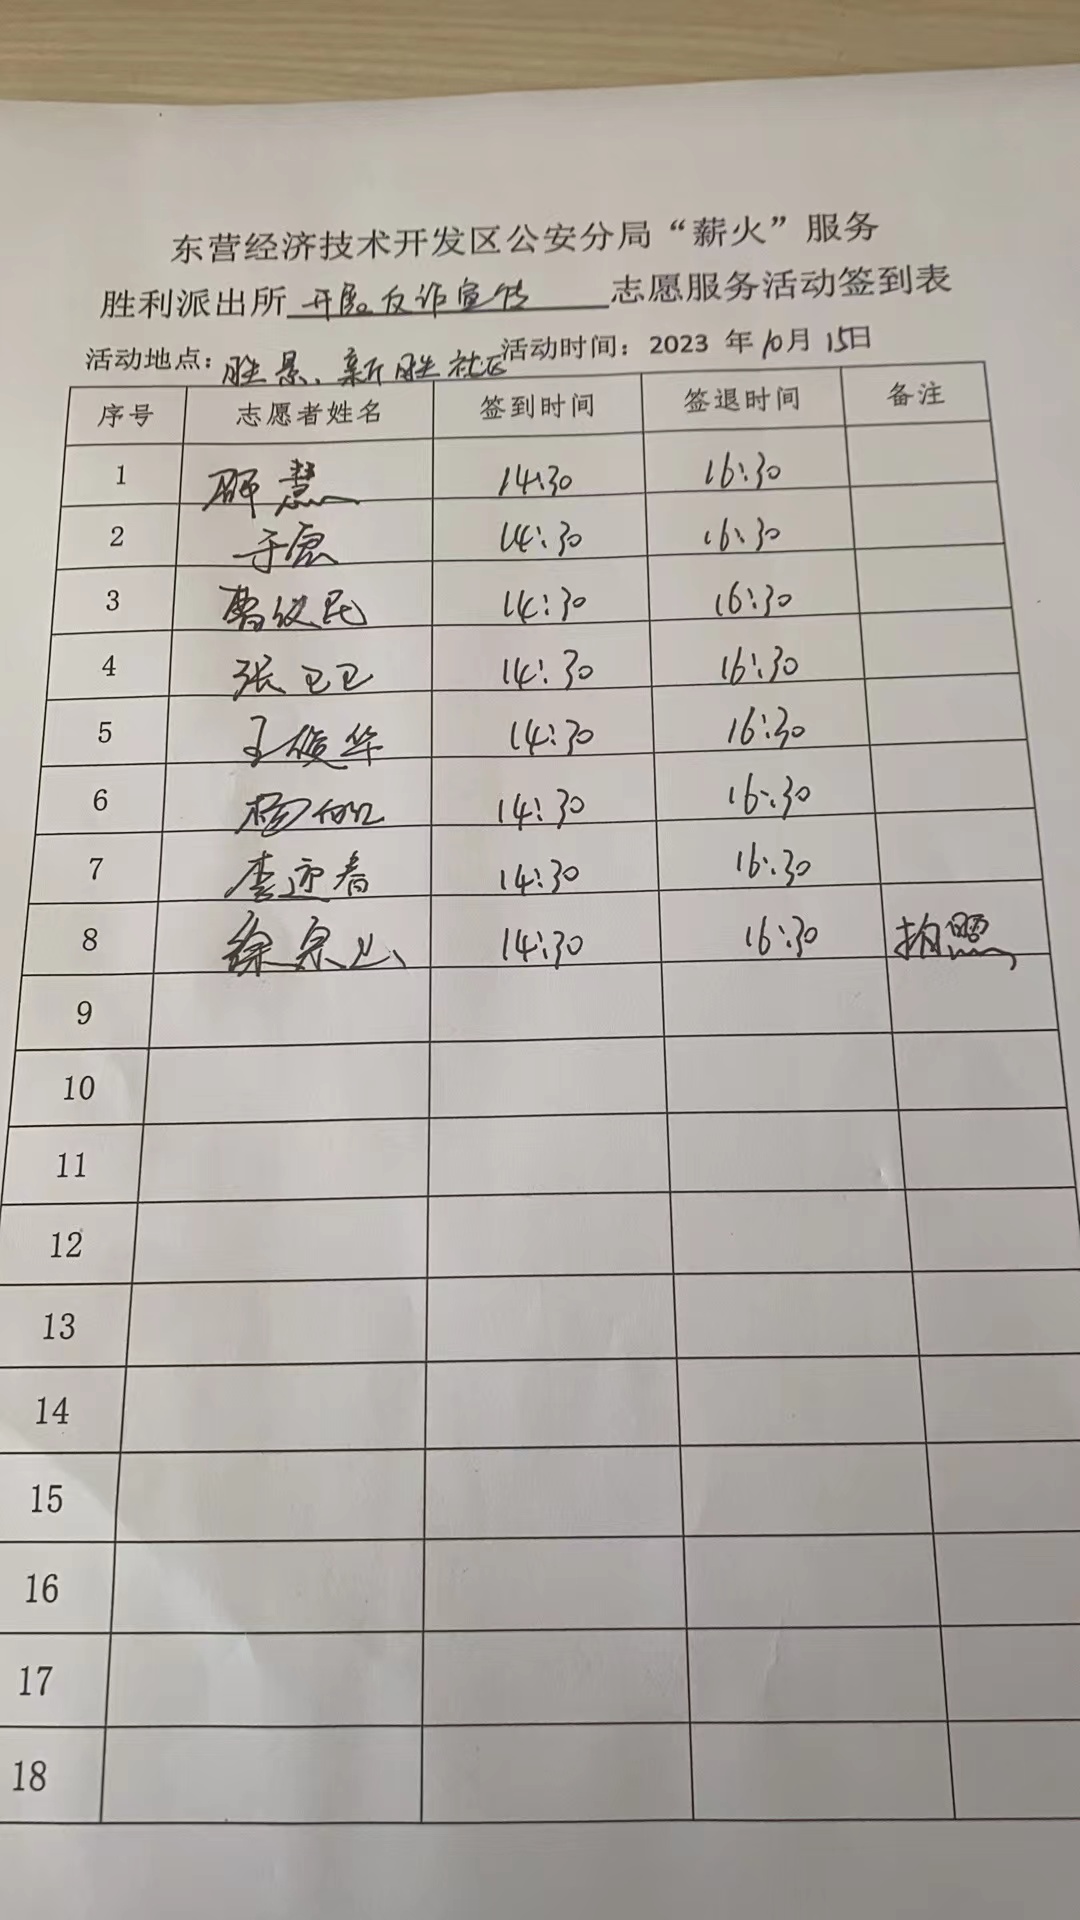 东营经济技术开发区公安分局“薪火”服务
胜利派出所 开展反诈宣传 志愿服务活动签到表
活动地点：胜景、新胜社区 活动时间：2023 年 10月 15日
序号 志愿者姓名 签到时间 签退时间 备注
1 慧 14:30 16:30
2 于 14:30 16:30
3 曹 民 14:30 16:30
4 张卫卫 14:30 16:30
5 王俊华 14:30 16:30
6 杨 14:30 16:30
7 李迎春 14:30 16:30
8 徐宗 14:30 16:30 拍照
9
10
11
12
13
14
15
16
17
18